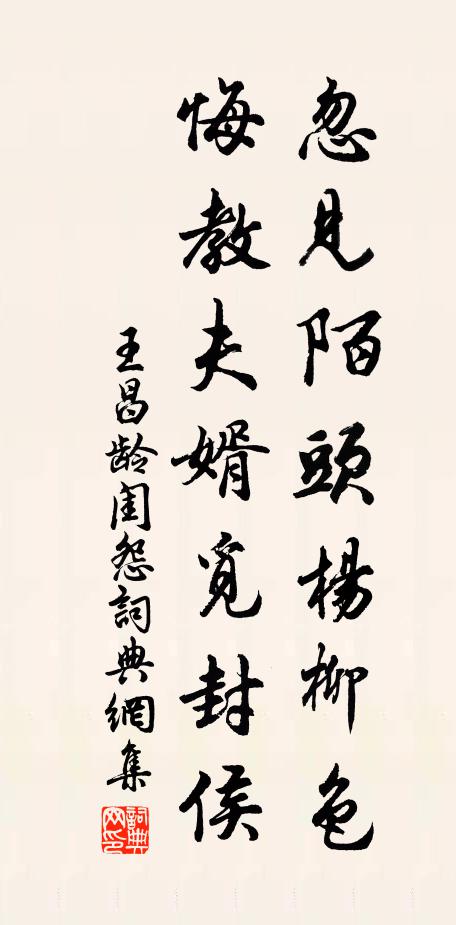 忽見陌頭楊柳色
悔教夫婿覓封侯
王昌齡閨怨詞典網集
詞典
网印